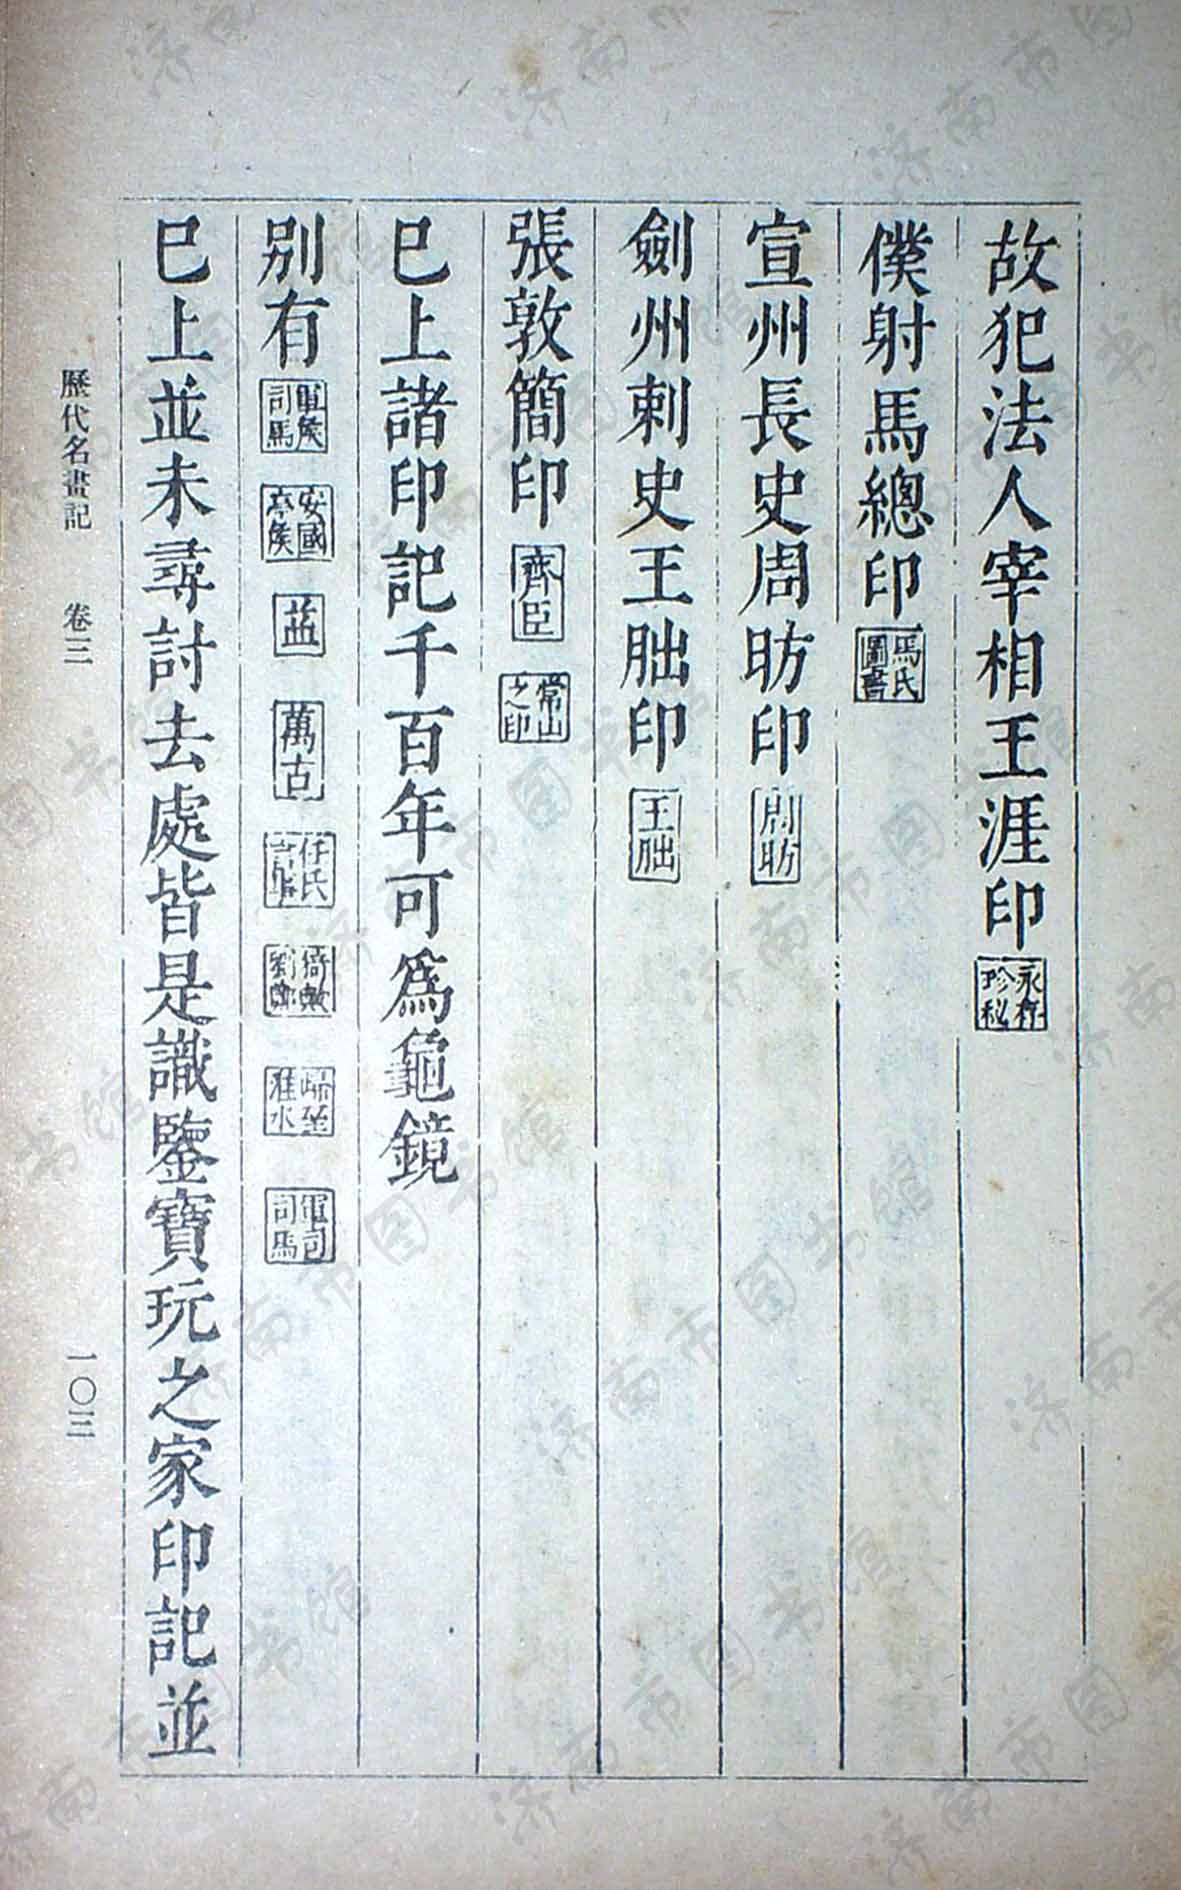 故犯法人宰相王涯印 永存珍秘
僕射馬總印 馬氏圖書
宣州長史周昉印 周昉
劍州刺史王朏印 王朏
張敦簡印 齊臣 常山之印
已上諸印記千百年可爲龜鏡
别有 軍候司馬 安國亭侯 萬古 任氏 軍司司馬
已上並未尋討去處皆是識鑒寶玩之家印記並
歷代名畫記 卷三 一〇三
济南市图书馆